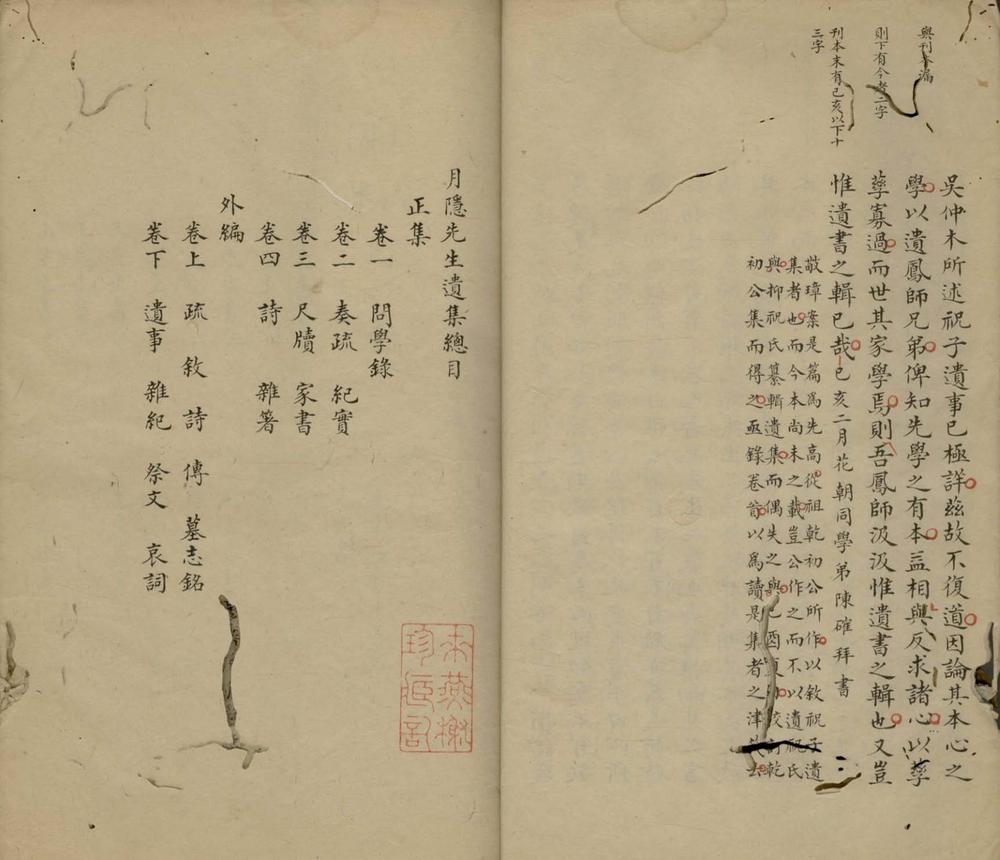 與刊本漏
則下有今者二字
刊本末有己亥以下十
三字
吳仲木所述祝子遺事已極詳茲故不復道因論其本心之
學以遺鳳師兄弟俾知先學之有本益相與反求諸心以孳
孳寡過而世其家學焉則吾鳳師汲汲惟遺書之輯也又豈
惟遺書之輯已哉己亥二月花朝同學弟陳確拜書
敬璋案是篇爲先高從祖乾初公所作以敘祝子遺
集者也而今本尚未之載豈公作之而不以遺祝氏
與抑祝氏纂輯遺集而偶失之與己酉夏校乾
初公集而得之亟錄卷首以爲讀是集者之津云
月隱先生遺集總目
正集
卷一 問學錄
卷二 奏疏 紀實
卷三 尺牘 家書
卷四 詩 雜著
外編
卷上 疏 敘 詩 傳 墓志銘
卷下 遺事 雜紀 祭文 哀詞